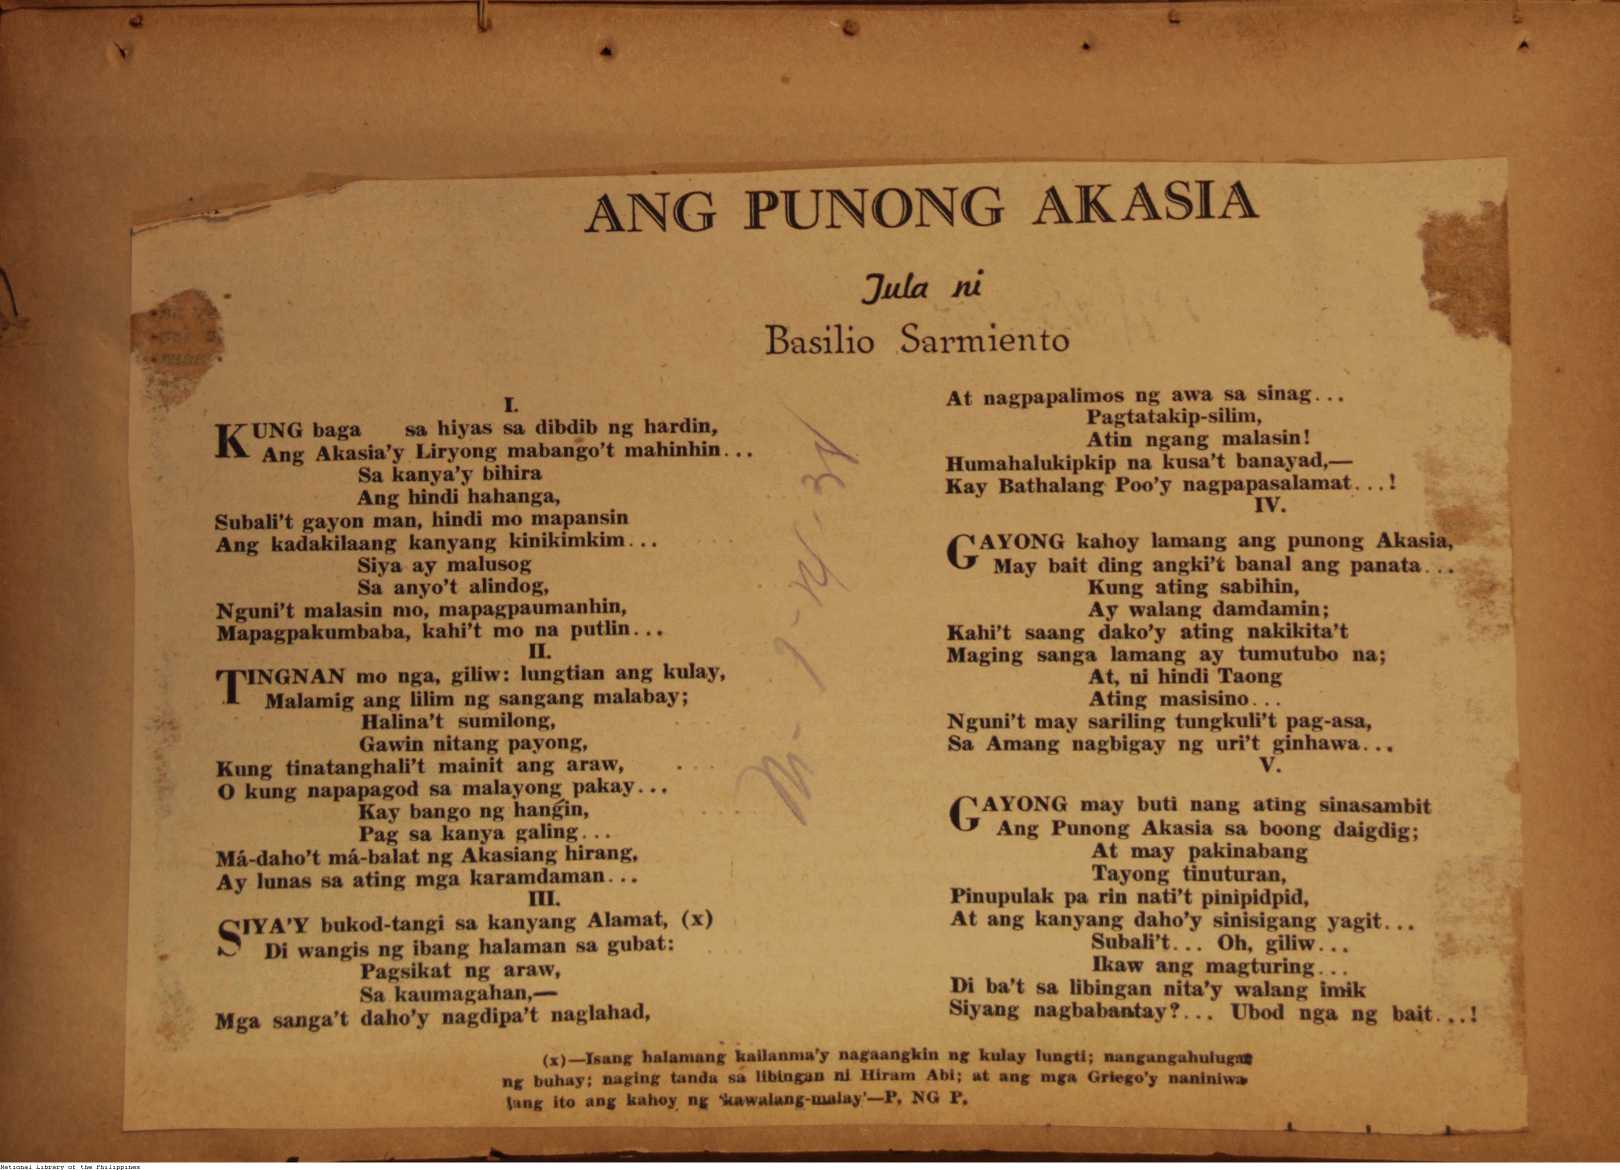 ANG PUNONG AKASIA
Tula ni
Basilio Sarmiento
I.
KUNG baga sa hiyas sa dibdib ng hardin,
Ang Akasia'y Liryong mabango't mahinhin...
Sa kanya'y bihira
Ang hindi hahanga,
Subali't gayon man, hindi mo mapansin
Ang kadakilaang kanyang kinikimkim...
Siya ay malusog
Sa anyo't alindog,
Nguni't malasin mo, mapagpaumanhin,
Mapagpakumbaba, kahi't mo na putlin...
II.
TINGNAN mo nga, giliw: lungtian ang kulay,
Malamig ang lilim ng sangang malabay;
Halina't sumilong,
Gawin nitang payong,
Kung tinatanghali't mainit ang araw,
O kung napapagod sa malayong pakay...
Kay bango ng hangin,
Pag sa kanya galing...
Má-daho't má-balat ng Akasiang hirang,
Ay lunas sa ating mga karamdaman...
III.
SIYA'Y bukod-tangi sa kanyang Alamat, (x)
Di wangis ng ibang halaman sa gubat:
Pagsikat ng araw,
Sa kaumagahan,—
Mga sanga't daho'y nagdipa't naglahad,
At nagpapalimos ng awa sa sinag...
Pagtatakip-silim,
Atin ngang malasin!
Humahalukipkip na kusa't banayad,—
Kay Bathalang Poo'y nagpapasalamat...!
IV.
GAYONG kahoy lamang ang punong Akasia,
May bait ding angki't banal ang panata...
Kung ating sabihin,
Ay walang damdamin;
Kahi't saang dako'y ating nakikita't
Maging sanga lamang ay tumutubo na;
At, ni hindi Taong
Ating masisino...
Nguni't may sariling tungkuli't pag-asa,
Sa Amang nagbigay ng uri't ginhawa...
V.
GAYONG may buti nang ating sinasambit
Ang Punong Akasia sa boong daigdig;
At may pakinabang
Tayong tinuturan,
Pinupulak pa rin nati't pinipidpid,
At ang kanyang daho'y sinisigang yagit...
Subali't... Oh, giliw...
Ikaw ang magturing...
Di ba't sa libingan nita'y walang imik
Siyang nagbabantay?... Ubod nga ng bait...!
(x)—Isang halamang kailanma'y nagaangkin ng kulay lungti; nangangahulugan
ng buhay; naging tanda sa libingan ni Hiram Abi; at ang mga Griego'y naniniwa-
lang ito ang kahoy ng 'kawalang-malay'—P. NG P.
National Library of the Philippines